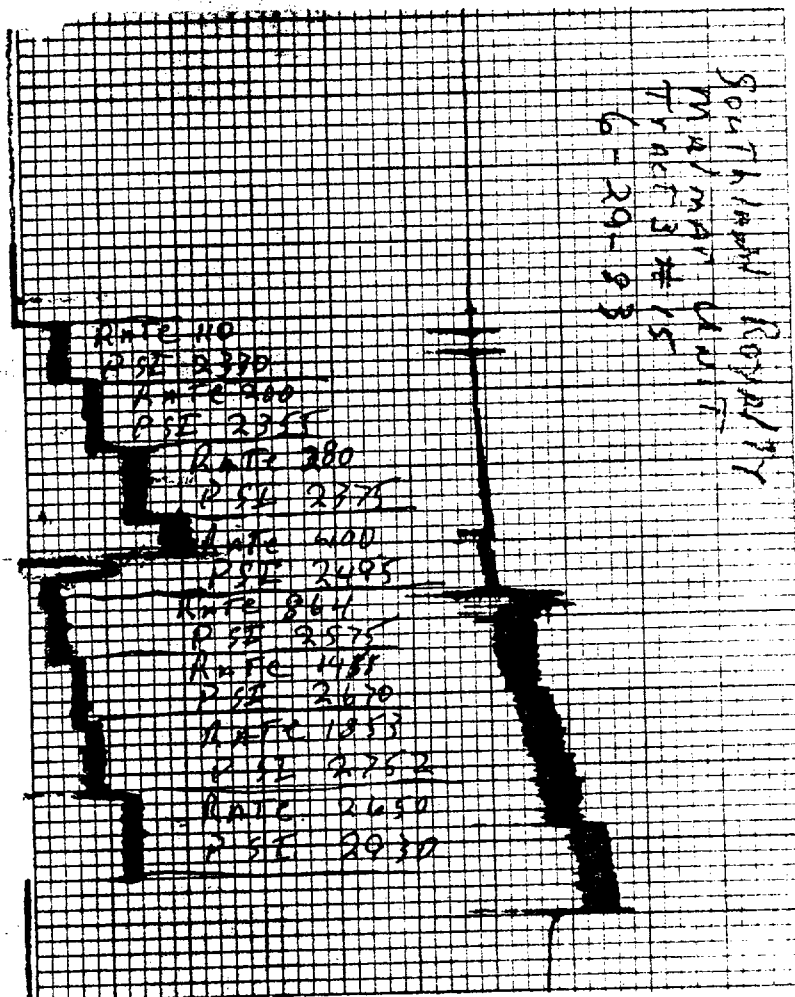 Southland Royalty
Malmar Unit
Tract 3 # 15
6-29-83
Rate 110
PSI 2330
Rate 200
PSI 2355
Rate 280
PSI 2375
Rate 400
PSI 2495
Rate 864
PSI 2575
Rate
PSI 2670
Rate 1853
PSI 2752
Rate 2650
PSI 2930